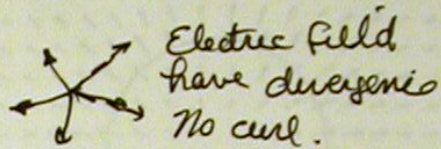 Electric field
have divergenc
No curl.